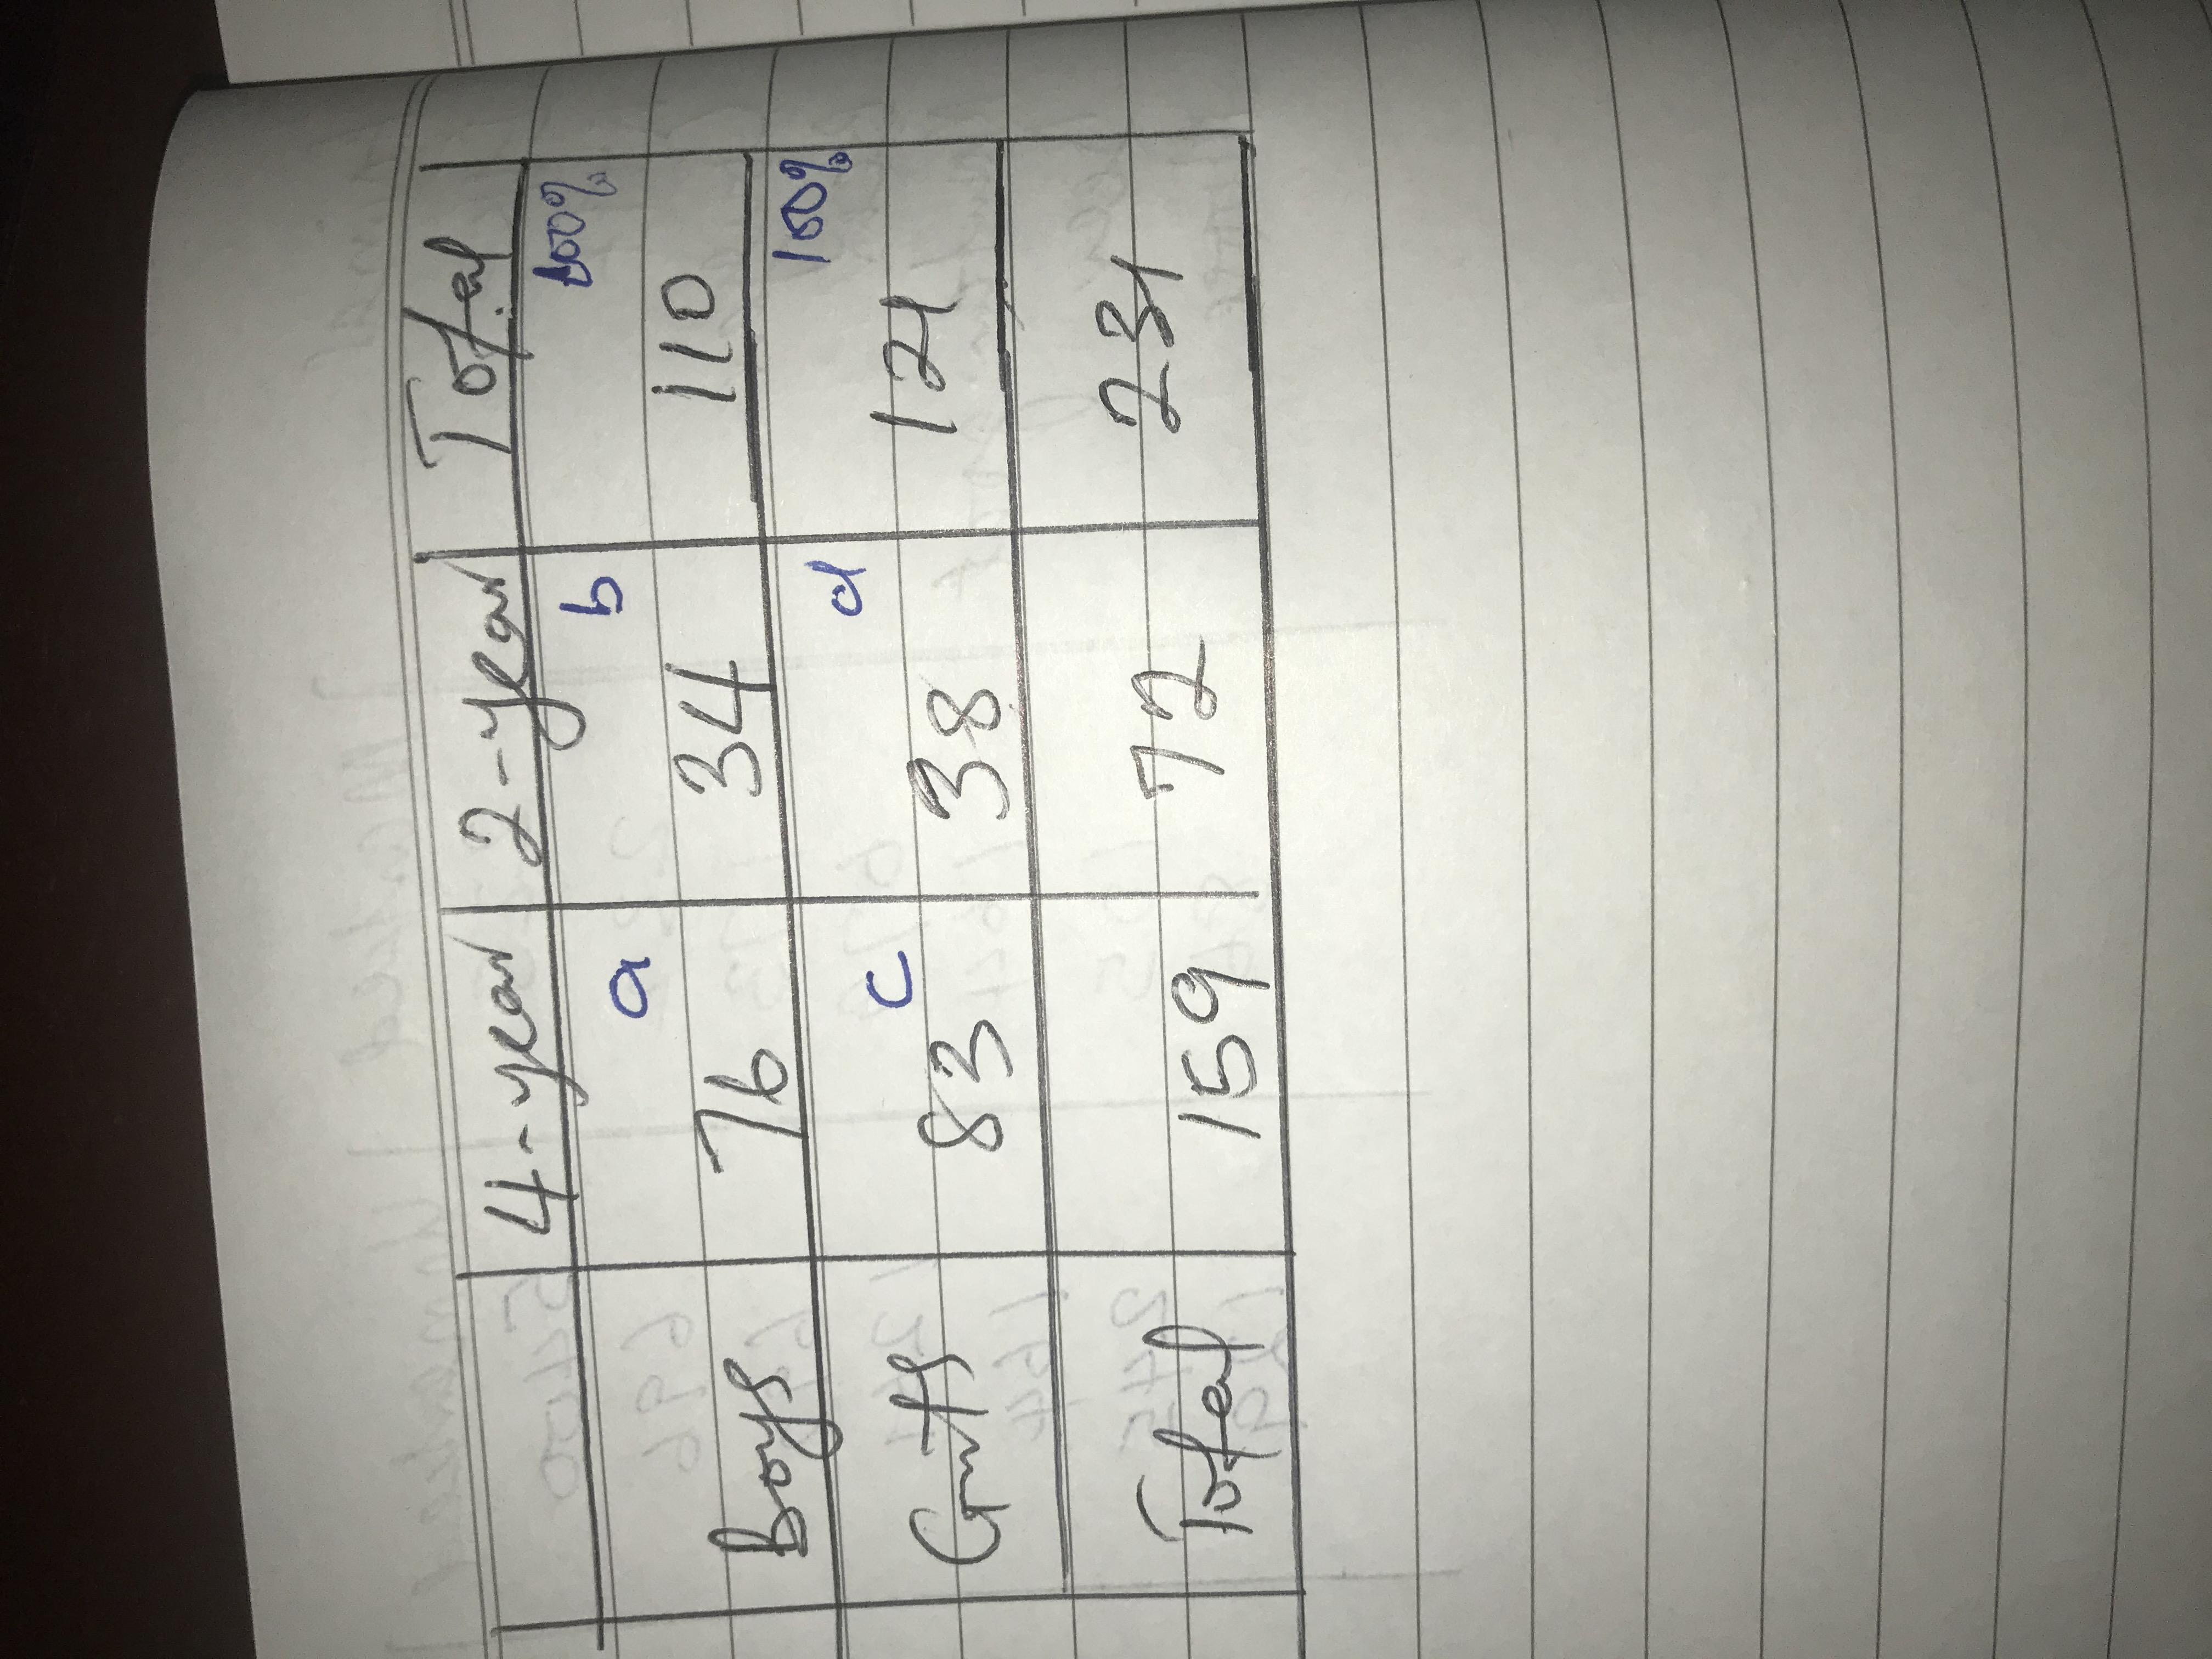 4-year 2-year Total
a b 100%
Boys 76 34 110
c d 100%
Girls 83 38 121
Total 159 72 231